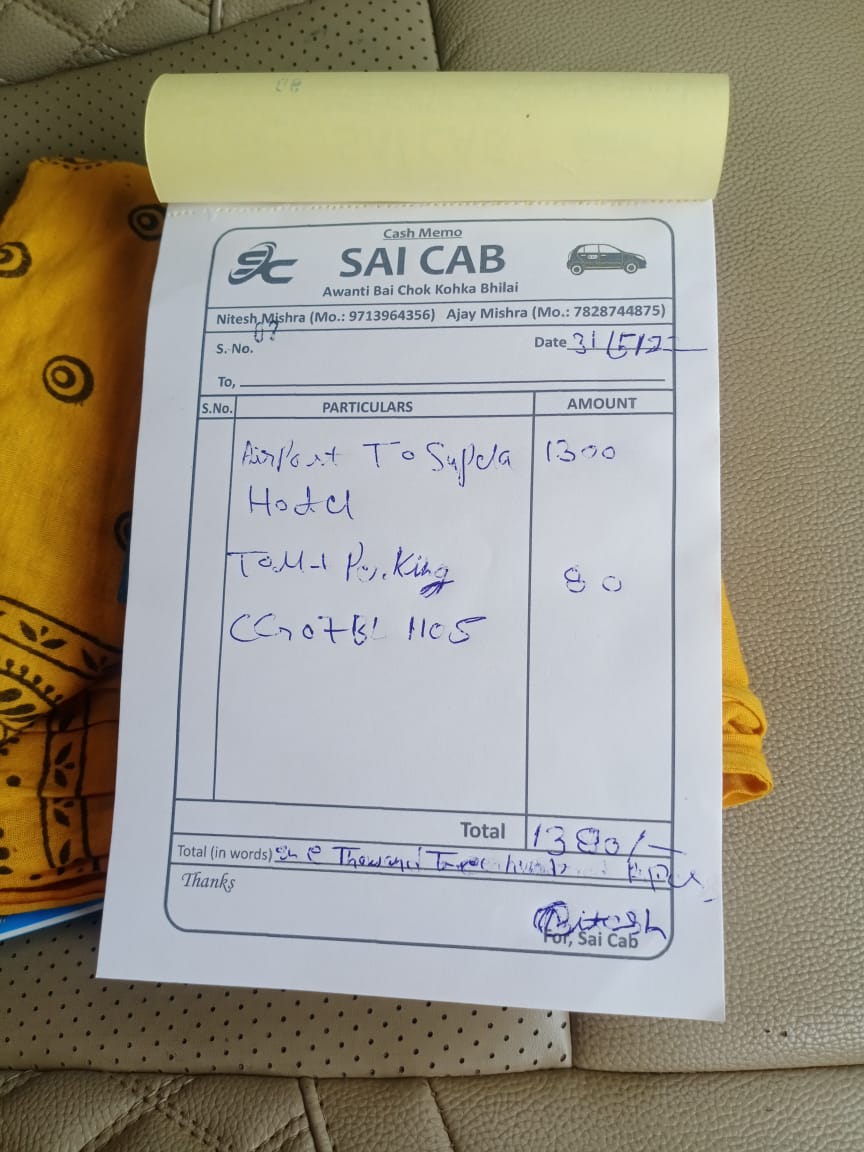 Cash Memo
SC SAI CAB
Awanti Bai Chok Kohka Bhilai
Nitesh Mishra (Mo.: 9713964356) Ajay Mishra (Mo.: 7828744875)
S. No. 07
Date 31/5/22
To,
S.No. PARTICULARS AMOUNT
Airport To Supela 1300
Hotel
Parking 80
1105
Total 1380/-
Total (in words) Thousand
Thanks
For, Sai Cab